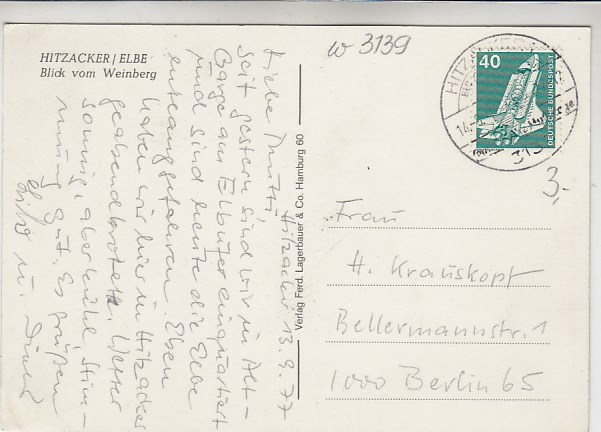 HITZACKER/ELBE
Blick vom Weinberg
w 3139
40
DEUTSCHE BUNDESPOST
HITZACKER
3,-
Verlag Ferd. Lagerbauer & Co. Hamburg 60
Hitzacker 13.9.77
Liebe Mutti,
seit gestern sind wir in Alt-
Garge am Elbufer einquartiert
und sind heute die Elbe
entlanggefahren. Eben
haben wir hier in Hitzacker
geabendbrotet. Wetter
sonnig, aber kühl, Stim-
mung gut. Es grüßen
u.
Frau
H. Krauskopf
Bellermannstr. 1
1000 Berlin 65